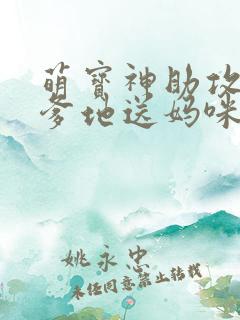 萌宝神助攻
爹地送妈咪
姚永忠
未经同意禁止转载